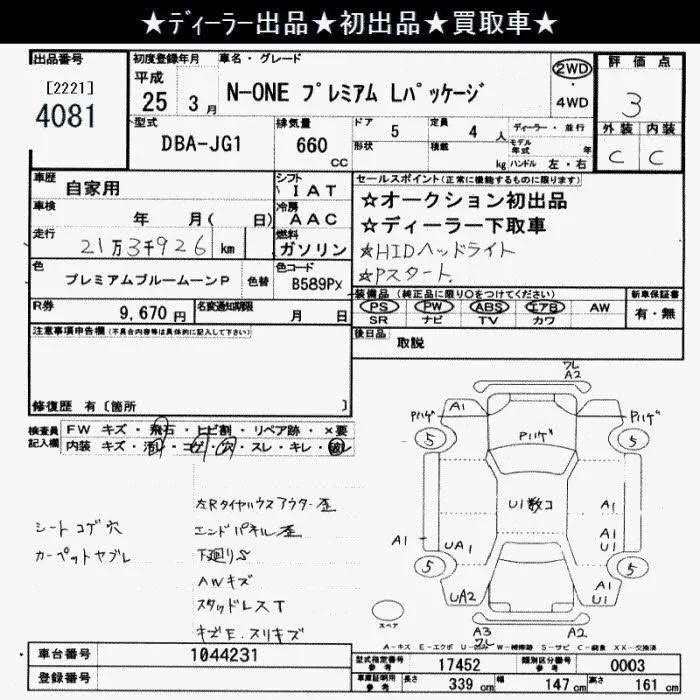 ★ディーラー出品★初出品★買取車★
出品番号
[2221]
4081
初度登録年月
平成
25 3 月
車名・グレード
N-ONE プレミアム Lパッケージ
2WD
・
4WD
評価点
3
外装 内装
C C
型式
DBA-JG1
排気量
660
CC
ドア 5
定員 4 人
形状
積載 kg
ディーラー・並行
モデル年式 年
ハンドル 左・右
車歴
自家用
シフト
I A T
車検
年 月( 日)
冷房
A A C
走行
21万3千926 km
燃料
ガソリン
色
プレミアムブルームーンP
色替
色コード
B589Px
R券
9,670 円
名変通知期限
月 日
セールスポイント(正常に機能するものに限ります)
☆オークション初出品
☆ディーラー下取車
☆HIDヘッドライト
☆Pスタート.
装備品 (純正品に限り○をつけてください)
PS PW ABS エアB AW
SR ナビ TV カワ
新車保証書
有・無
後日品
取説
注意事項申告欄(不具合内容等は具体的に記入して下さい)
修復歴 有〔箇所 〕
検査員記入欄
FW キズ・飛石・ヒビ割・リペア跡・×要
内装 キズ・汚れ・コゲ・穴・スレ・キレ・破レ
シートコゲ穴
カーペットヤブレ
左Rタイヤハウスアウター歪
エンドパネル歪
下廻りS
AWキズ
スタッドレスT
キズE.スリキズ
ワレ
A2
A1
Pハゲ
Pハゲ
5
5
Pハゲ
U1数コ
A1
A1
A1
U1
UA1
5
5
UA2
A1
U1
スペア
A3
ワレ
A2
A-キズ E-エクボ U-凹み W-補修跡 S-サビ C-腐食 XX-交換済
車台番号
1044231
登録番号
型式指定番号
参考
17452
類別区分番号
参考
0003
車庫証明用
参考
長さ 339 cm
幅 147 cm
高さ 161 cm